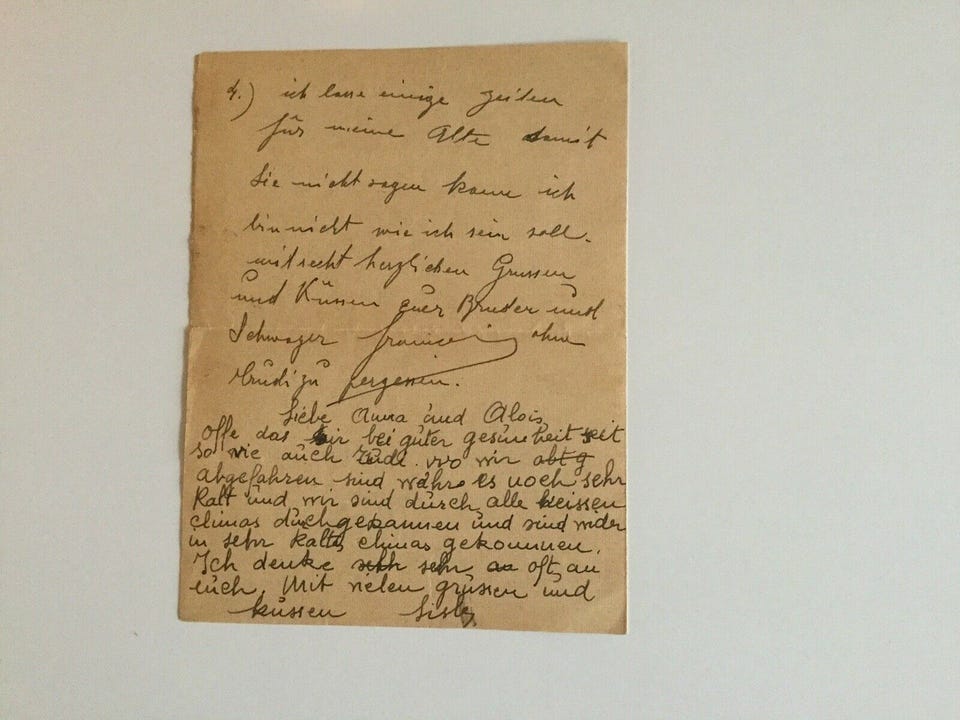 4.) ich lasse einige zeilen
für meine Alte damit
Sie nicht sagen kann ich
bin nicht wie ich sein soll.
mit recht herzlichen Grussen
und Küssen euer Bruder und
Schwager ohne
zu vergessen.
Liebe Anna und Alois
offe das ir bei guter gesunheit seit
so wie auch wo wir abt g
abgefahren sind währe es noch sehr
Kalt und wir sind durch alle heissen
climas duchgekannen und sind wider
in sehr Kalte climas gekommen.
Ich denke sehr oft an
euch. Mit vielen grüssen und
küssen